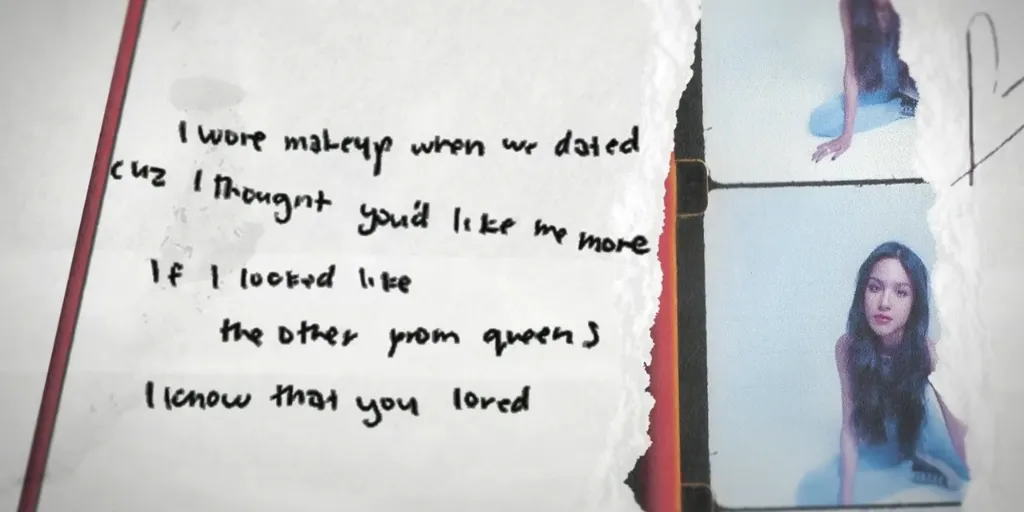 I wore makeup when we dated
cuz I thought you'd like me more
If I looked like
the other prom queens
I know that you loved